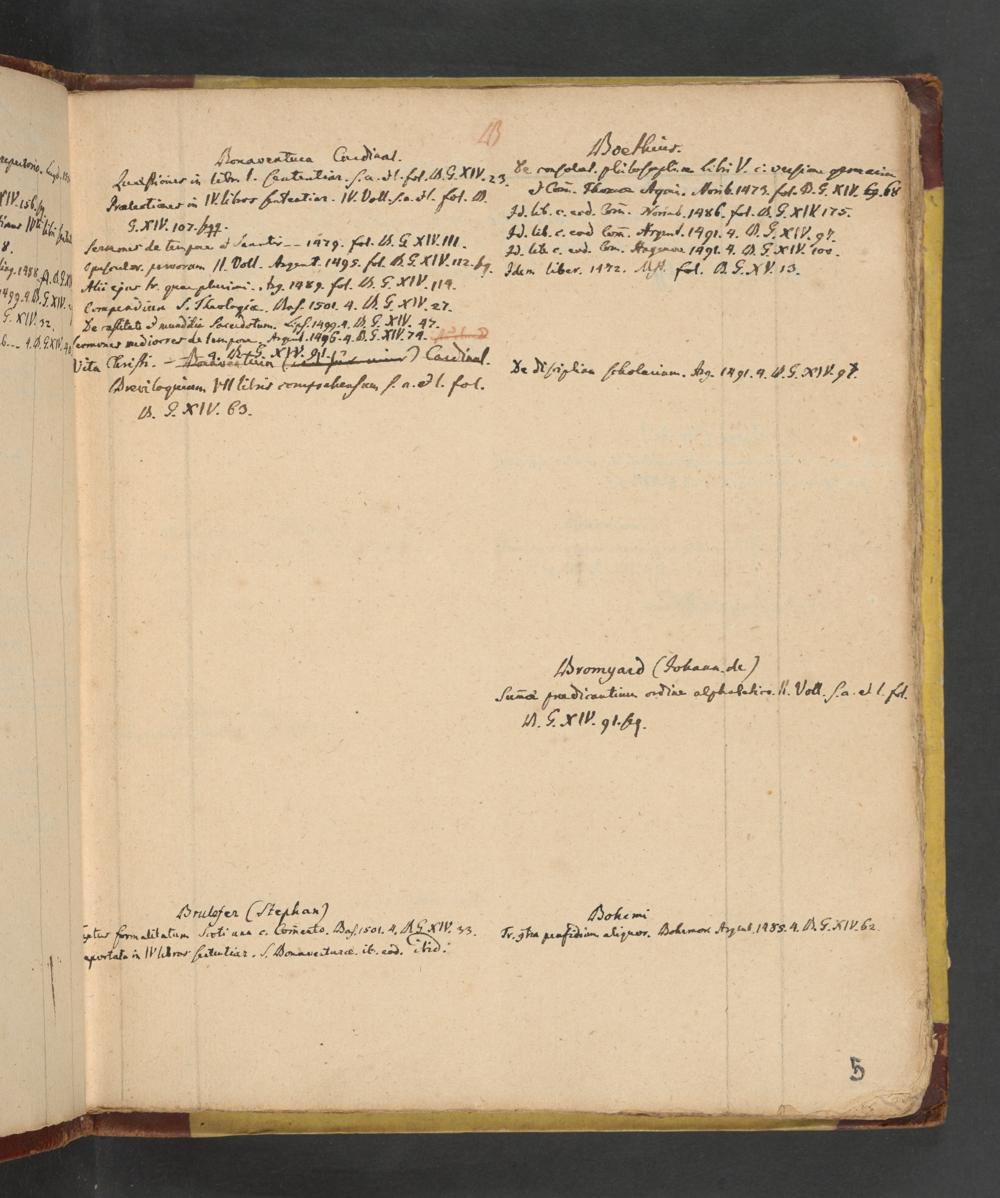 B
Bonaventura Cardinal.
Quaestiones in libr. I. Sententiar. s. a. et l. fol. B. G. XIV. 23.
in IV. libros sententiar. IV. Voll. s. a. et l. fol. B.
G. XIV. 107. sqq.
Sermones de tempore et Sanctis -- 1479. fol. B. G. XIV. 111.
Opusculor. parvorum II. Voll. Argent. 1495. fol. B. G. XIV. 112. sq.
Alii ejus tr. quamplurimi. Arg. 1489. fol. B. G. XIV. 114.
Compendium S. Theologiae. Bas. 1501. 4. B. G. XIV. 27.
De castitate et munditia Sacerdotum. Lps. 1499. 4. B. G. XIV. 47.
Sermones mediocres de tempore. Argent. 1496. 4. B. G. XIV. 74.
Vita Christi. - 4. B. G. XIV. 91.
Bonaventura Cardinal.
Breviloquium VII libris comprehensum s. a. et l. fol.
B. G. XIV. 63.
Boethius.
De consolat. philosophiae libri V. c. versione
et Com̄. Thomae Aquin. Norib. 1473. fol. B. G. XIV. 68
Id. lib. c. eod. Com̄. Norimb. 1486. fol. B. G. XIV. 175.
Id. lib. c. eod Com̄. Argent. 1491. 4. B. G. XIV. 97.
Id. lib. c. eod. Com. Argent. 1491. 4. B. G. XIV. 100.
Idem liber. 1472. Mst. fol. B. G. XV. 13.
De disciplina scholarium. Arg. 1491. 4. B. G. XIV. 97.
Bromyard (Johann. de)
Sum̄a praedicantium ordine alphabetico. II. Voll. s. a. et l. fol.
B. G. XIV. 91. sq.
Brulefer (Stephan)
formalitatum Scoti una c. Comento. Bas. 1501. 4. B. G. XIV. 33.
in IV libros sententiar. S. Bonaventurae. it. eod. ibid.
Bohemi
Tr. contra perfidiam aliquor. Bohemor. Argent. 1485. 4. B. G. XIV. 62.
5